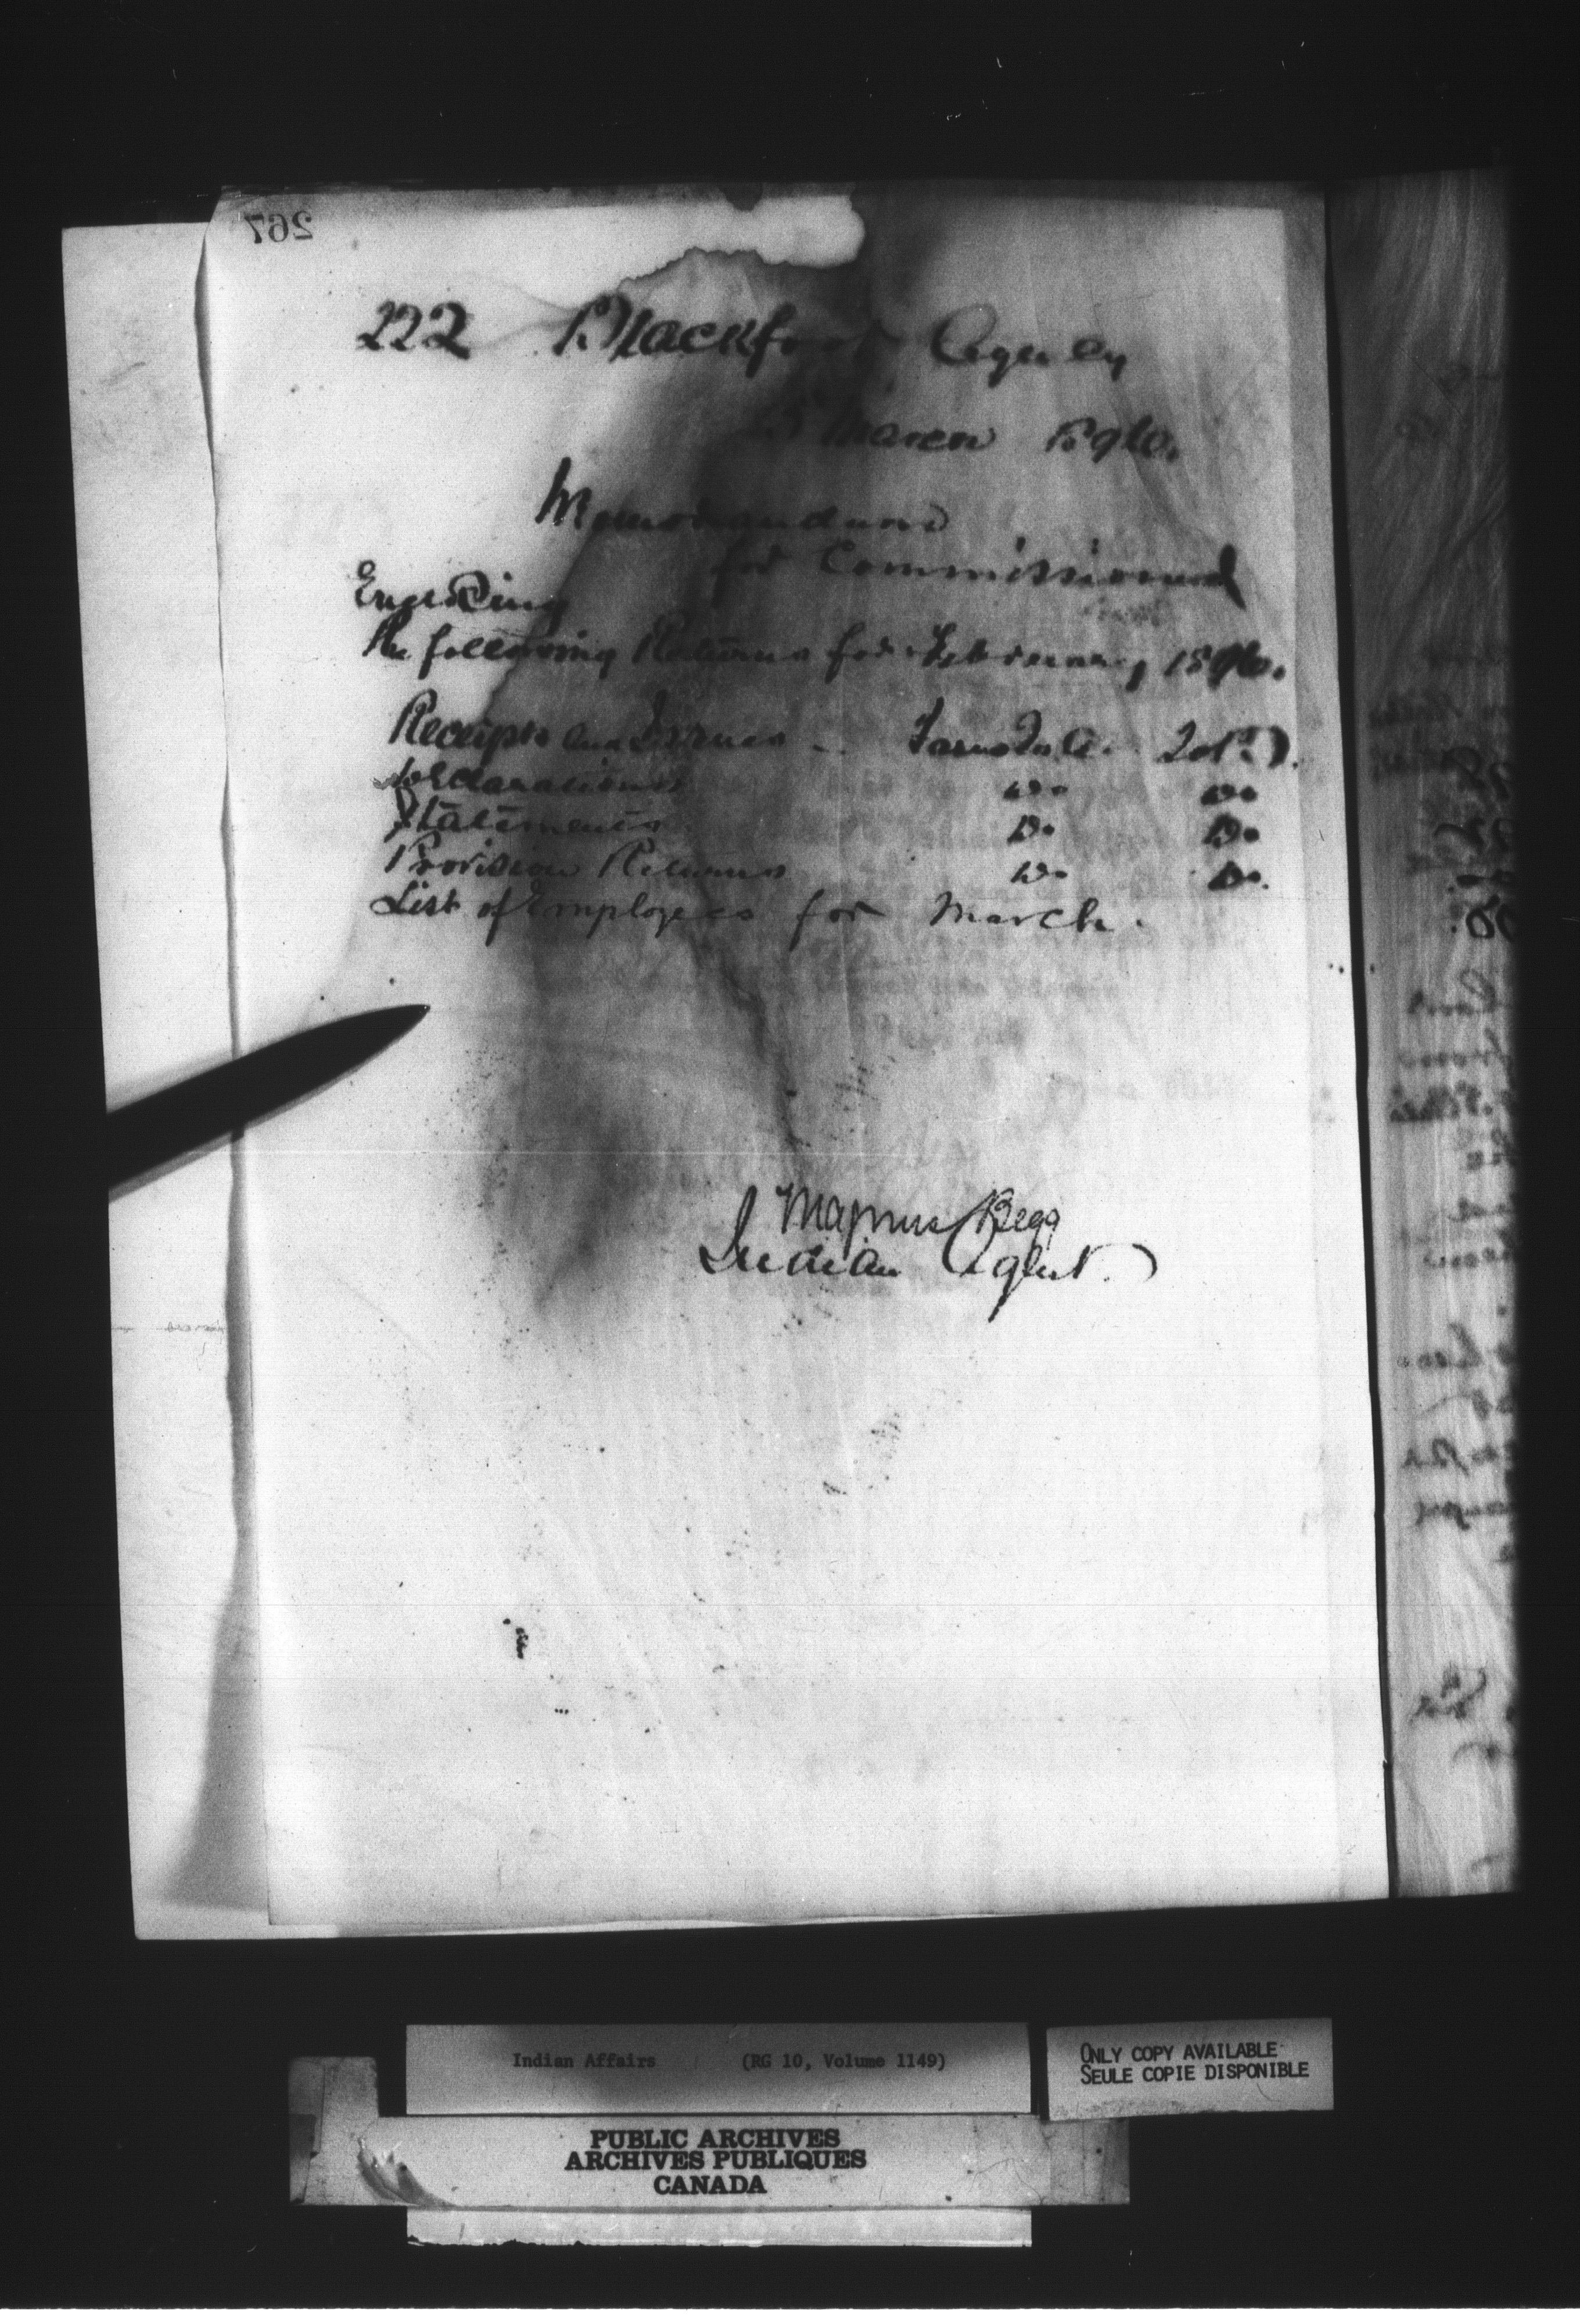 267
222 Blackfoot Agency
March 1890.
Memorandum
for Commissioner
Enclosing
the following Returns for February 1890.
Receipts and Issues Farms
Declarations Do Do
Statements Do Do
Provision Returns Do Do.
List of Employees for March.
Magnus Begg
Indian Agent.
Indian Affairs (RG 10, Volume 1149)
ONLY COPY AVAILABLE
SEULE COPIE DISPONIBLE
PUBLIC ARCHIVES
ARCHIVES PUBLIQUES
CANADA